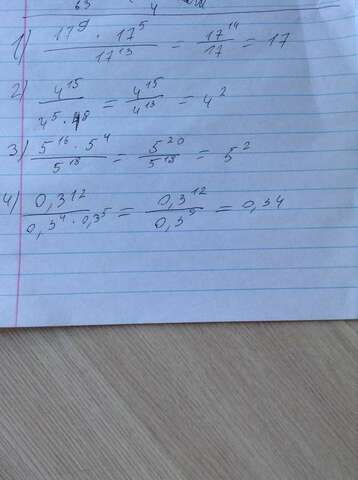 63 4
1) 17^9 · 17^5 / 17^13 = 17^14 / 17 = 17
2) 4^15 / 4^5 · 4^8 = 4^15 / 4^13 = 4^2
3) 5^16 · 5^4 / 5^18 = 5^20 / 5^18 = 5^2
4) 0,3^12 / 0,3^4 · 0,3^5 = 0,3^12 / 0,3^9 = 0,34